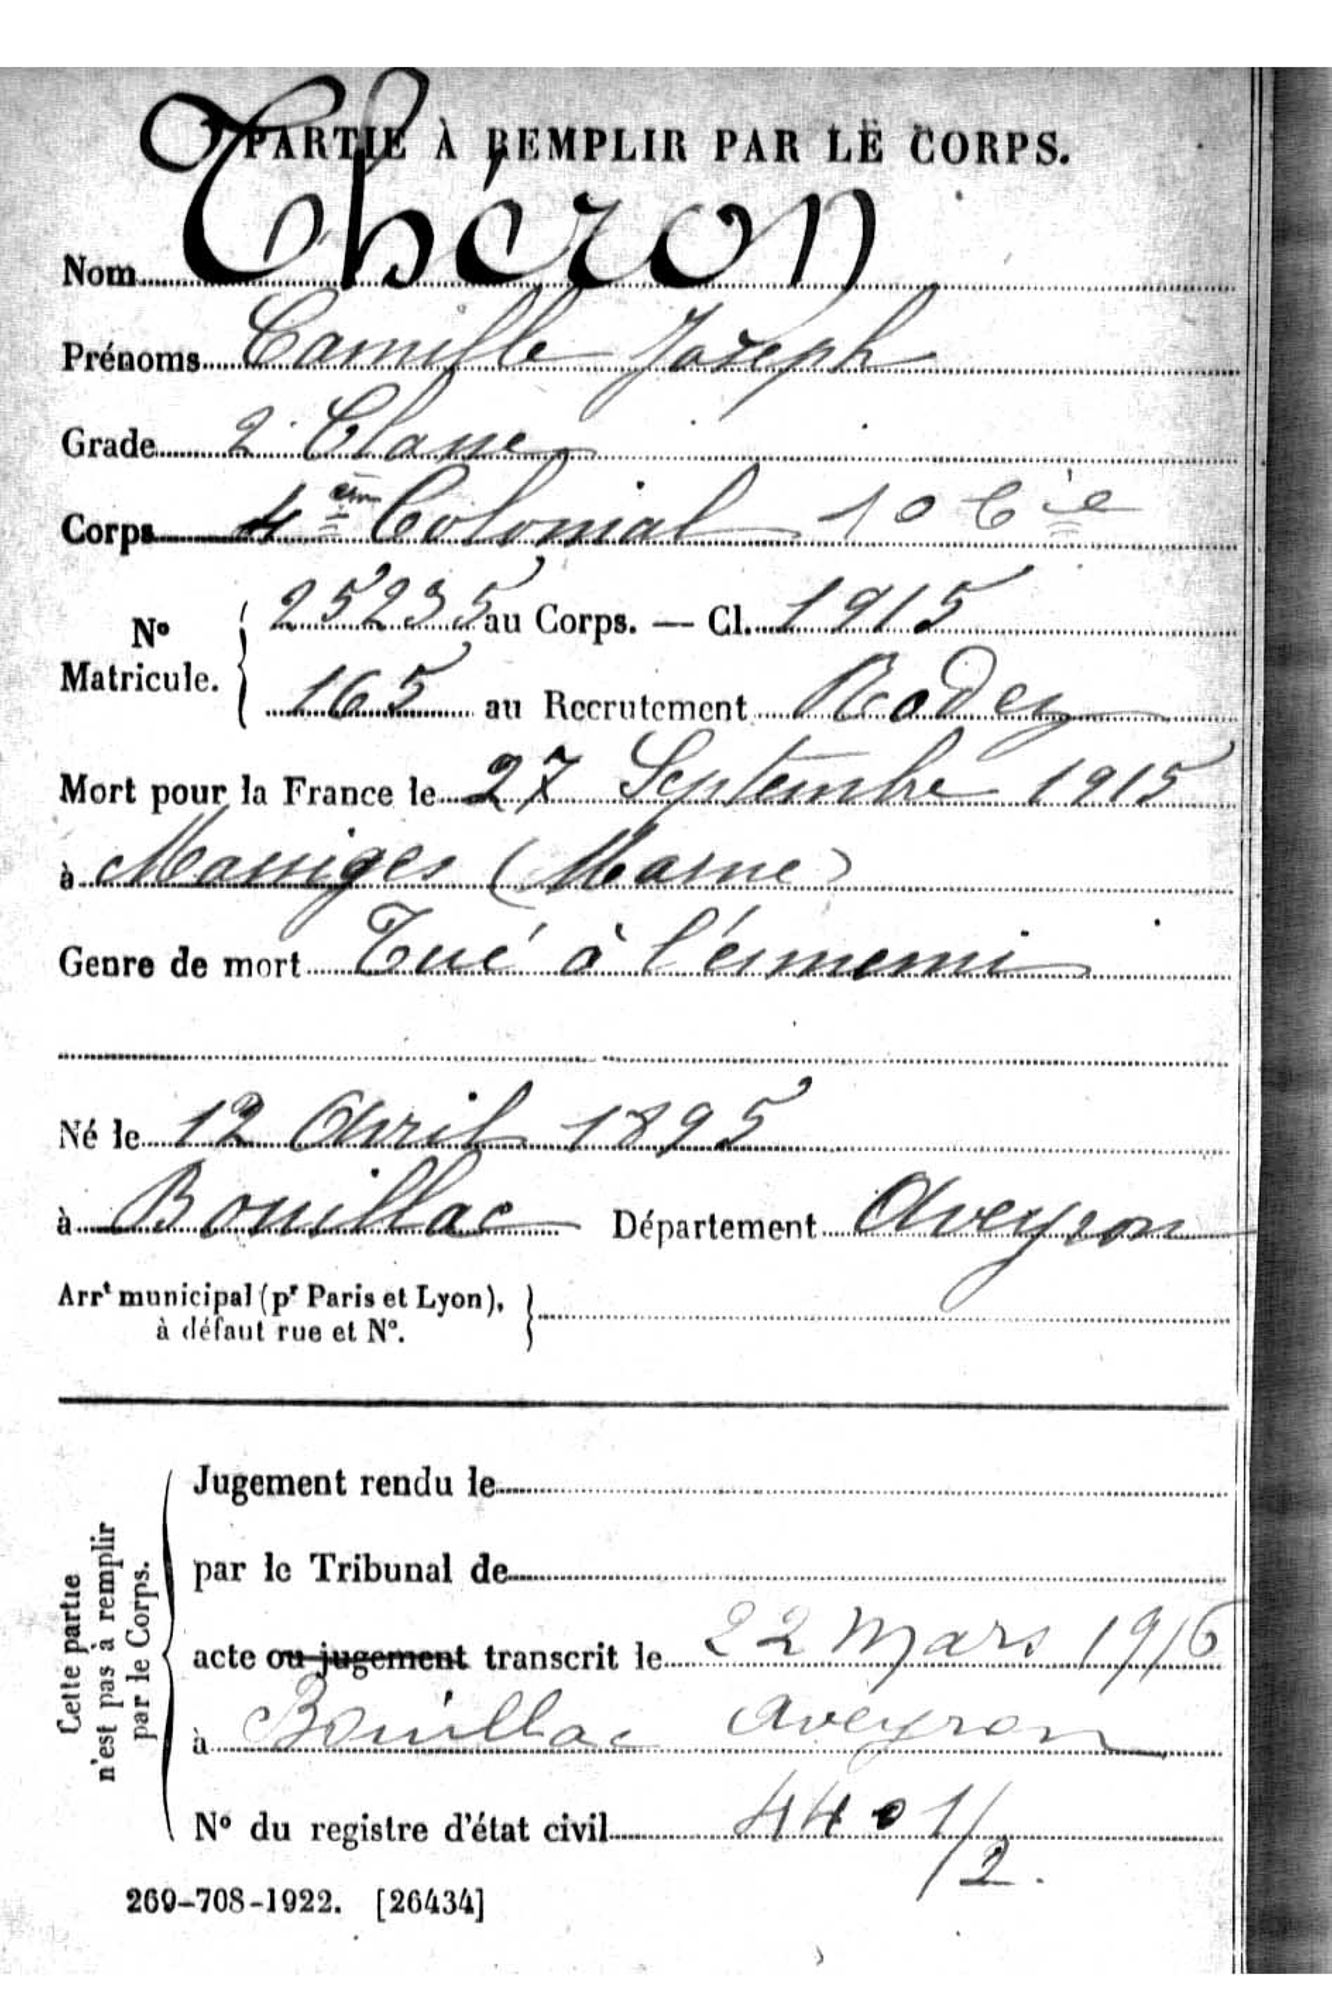 PARTIE À REMPLIR PAR LE CORPS.
Nom Théron
Prénoms Camille Joseph
Grade 2e Classe
Corps 4ème Colonial 10 Cie
No Matricule. { 25235 au Corps. — Cl. 1915
165 au Recrutement Rodez
Mort pour la France le 27 Septembre 1915
à Massiges (Marne)
Genre de mort Tué à l'ennemi
Né le 12 Avril 1895
à Bouillac Département Aveyron
Arrt municipal (pr Paris et Lyon), à défaut rue et No. }
Cette partie n'est pas à remplir par le Corps.
Jugement rendu le
par le Tribunal de
acte ou jugement transcrit le 22 mars 1916
à Bouillac Aveyron
No du registre d'état civil 440 1/2.
269-708-1922. [26434]